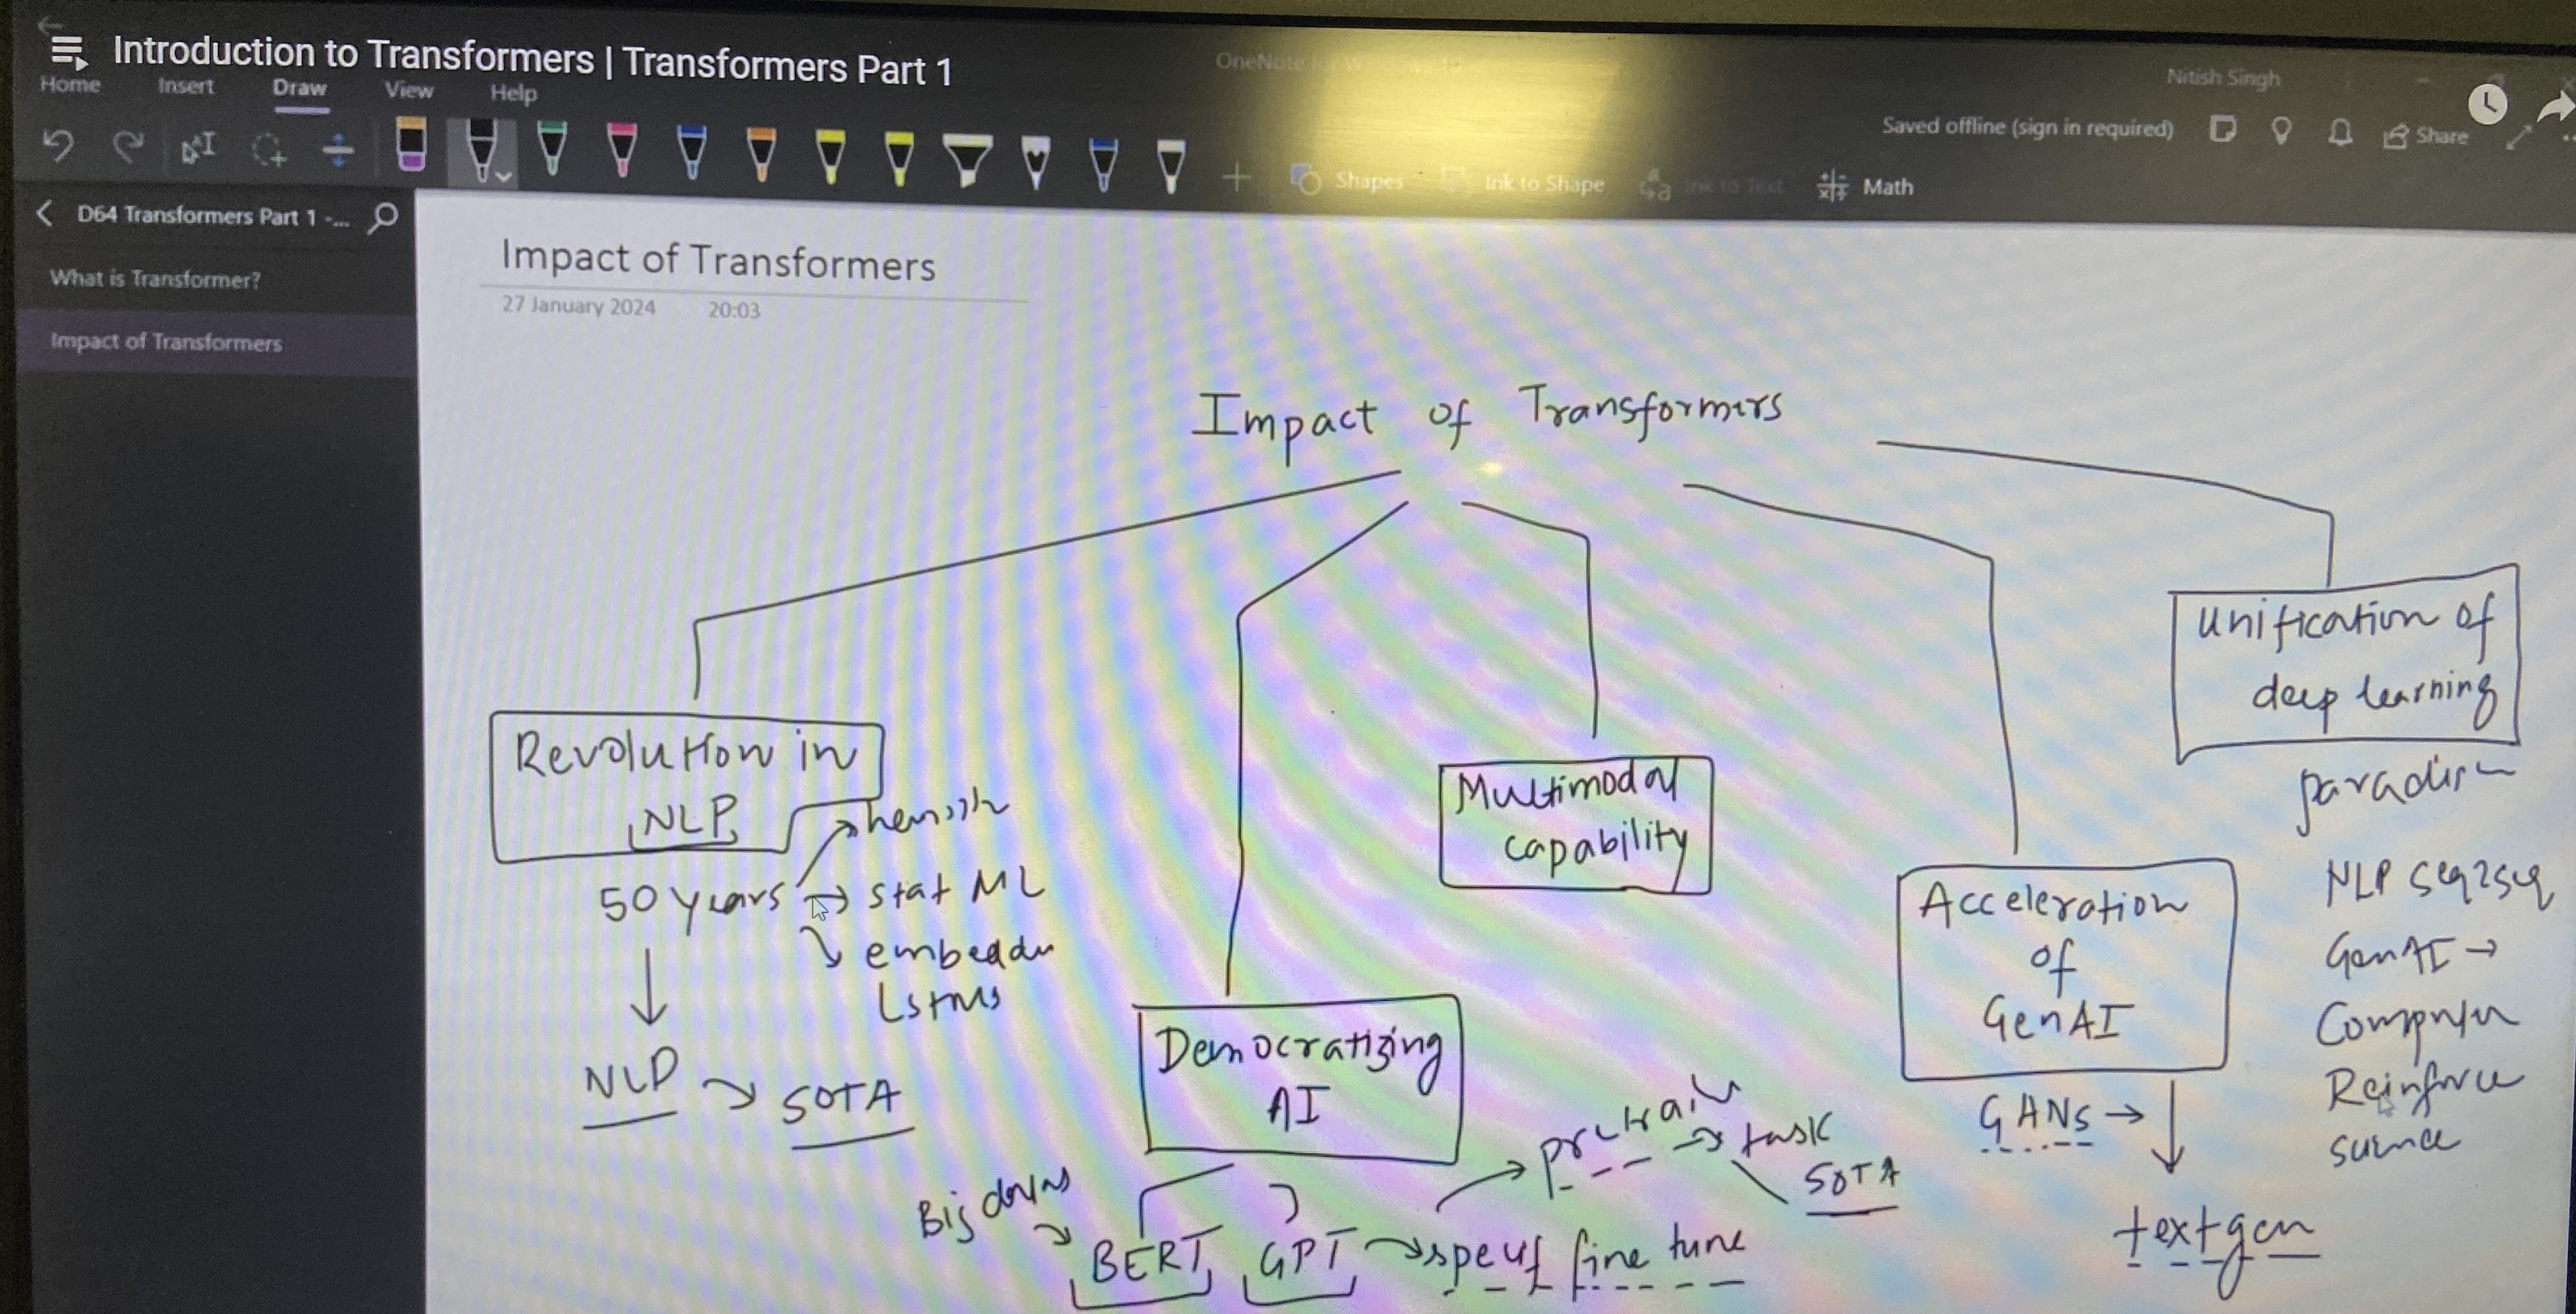 Introduction to Transformers | Transformers Part 1
OneNote for Windows 10
Nitish Singh
Home Insert Draw View Help
Saved offline (sign in required)
Share
Shapes Ink to Shape Ink to Text Math
D64 Transformers Part 1 -...
What is Transformer?
Impact of Transformers
Impact of Transformers
27 January 2024 20:03
Impact of Transformers
Revolution in
NLP
50 years
stat ML
LSTMs
NLP → SOTA
Democratizing
AI
Big
BERT GPT → fine tune
→ task
SOTA
Multimodal
capability
Acceleration
of
GenAI
GANs →
textgen
Unification of
deep learning
NLP seq2seq
GenAI →